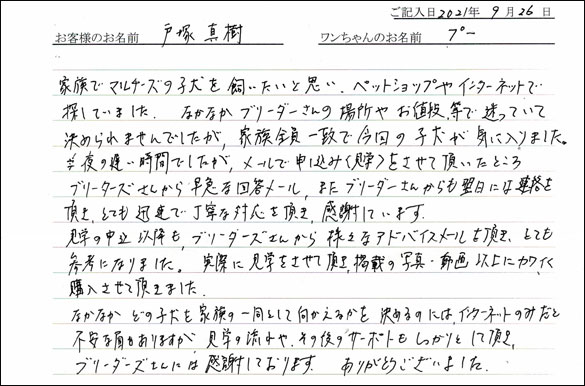 ご記入日2021年 9月26日
お客様のお名前 戸塚 真樹 ワンちゃんのお名前 プー
家族でマルチーズの子犬を飼いたいと思い、ペットショップやインターネットで
探していました。 なかなかブリーダーさんの場所やお値段、等で迷っていて
決められませんでしたが、家族全員一致で今回の子犬が気に入りました。
当夜の遅い時間でしたが、メールで申込み〈見学〉をさせて頂いたところ
ブリーダーズさんから早急な回答メール、またブリーダーさんからも翌日には連絡を
頂き、とても迅速で丁寧な対応を頂き、感謝しています。
見学の申込以降も、ブリーダーズさんから様々なアドバイスメールを頂き、とても
参考になりました。 実際に見学をさせて頂き、掲載の写真・動画以上にカワイく
購入させて頂きました。
なかなか どの子犬を家族の一同として向かえるかを決めるのには、インターネットのみだと
不安な面もありますが 見学の流れや、その後のサポートもしっかりとして頂き、
ブリーダーズさんには感謝しております。 ありがとうございました。